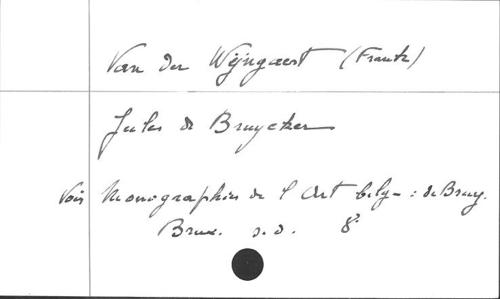 Van der Wijngaert (Frank)
Jules de Bruycker
Voir Monographies de l'Art belge : de Bruy.
Brux. s.d. 8°